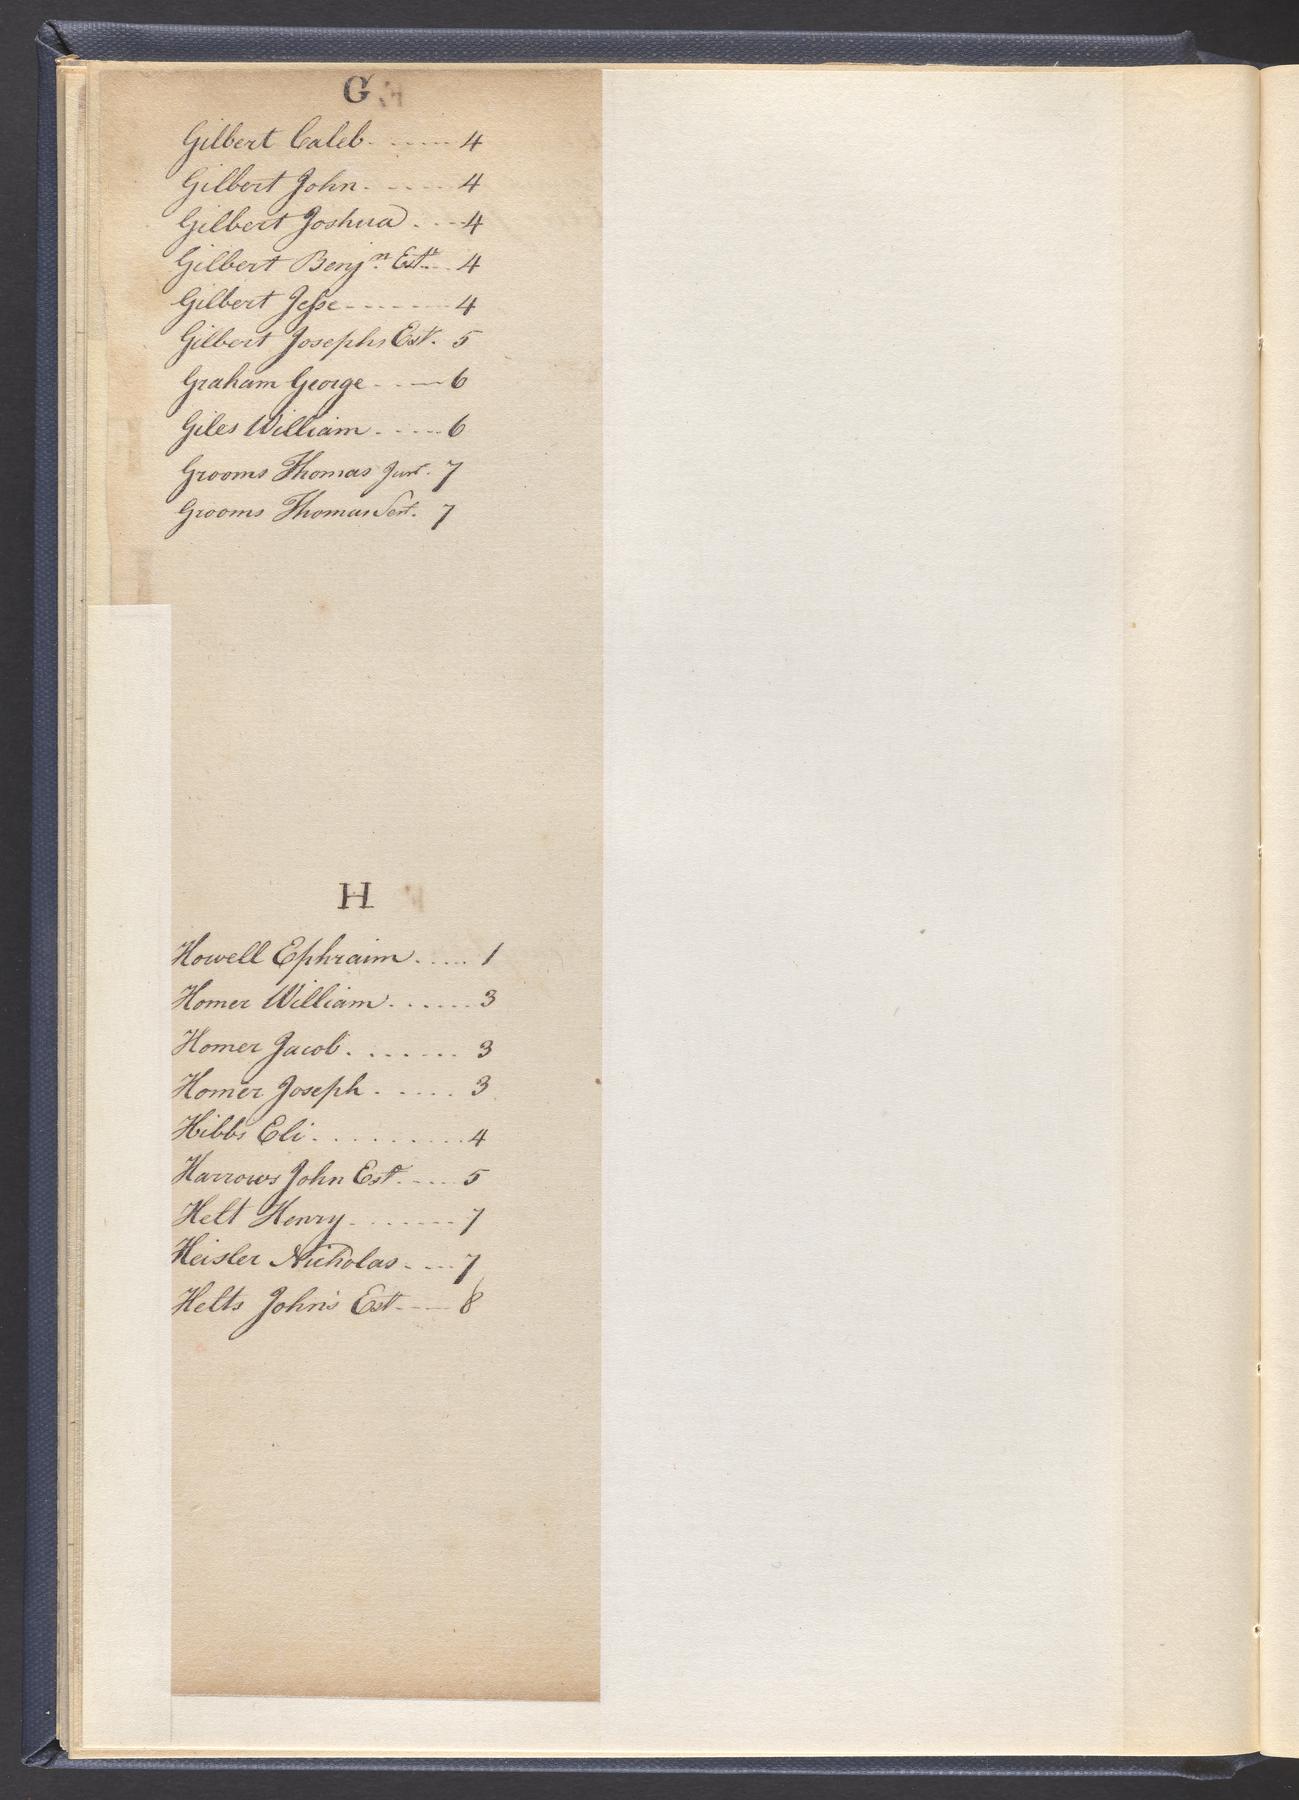 G
Gilbert Caleb. ------ 4
Gilbert John. ----- 4
Gilbert Joshua . --- 4
Gilbert Benjn. Este. -- 4
Gilbert Jesse ------- 4
Gilbert Josephs Est. 5
Graham George ----- 6
Giles William ----- 6
Grooms Thomas Junr. 7
Grooms Thomas Senr. 7
H
Howell Ephraim ..... 1
Homer William ...... 3
Homer Jacob. ....... 3
Homer Joseph ..... 3
Hibbs Eli .......... 4
Harrows John Est. ---- 5
Helt Henry ------- 7
Heisler Nicholas ---- 7
Helts John's Est ---- 8